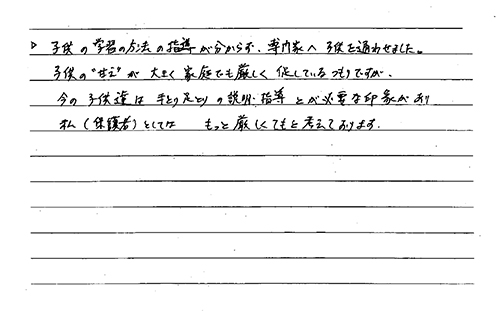 ▷ 子供の学習の方法の指導が分からず、専門家へ子供を通わせました。
子供の"甘え"が大きく家庭でも厳しく促しているつもりですが、
今の子供達は手とり足とりの説明・指導とが必要な印象があり
私（保護者）としては もっと厳しくてもと考えております.